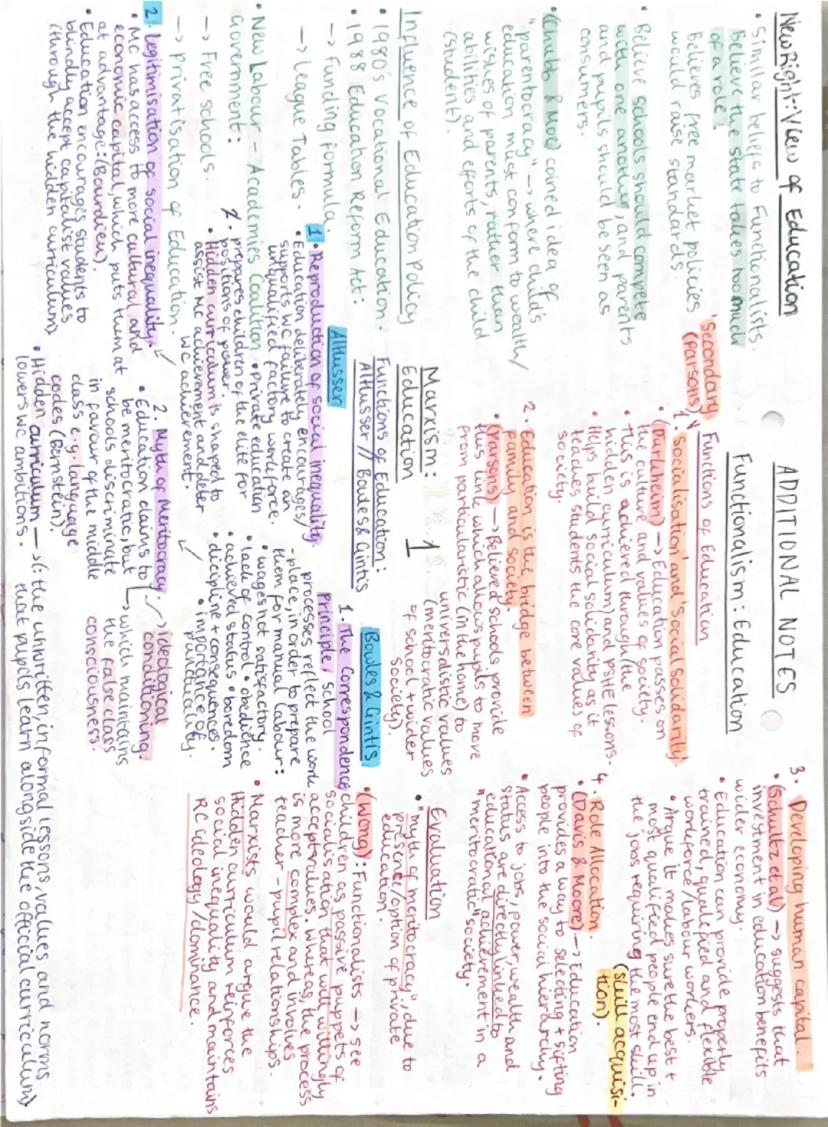 ADDITIONAL NOTES
New Right: View of Education
• Similar beliefs to Functionalists.
Believe the state takes too much
of a role.
Believes free market policies
would raise standards.
• Believe schools should compete
with one another, and parents
and pupils should be seen as
consumers.
• (Chubb & Moe) coined idea of
"parentocracy" → where child's
education must conform to wealth/
wishes of parents, rather than
abilities and efforts of the child
(student).
Influence of Education Policy
• 1980's Vocational Education.
• 1988 Education Reform Act:
→ Funding formula.
→ League Tables.
• New Labour - Academies Coalition
Government:
→ Free schools.
→ Privatisation of Education.
Functionalism: Education
Functions of Education
'Secondary
(Parsons)
1. Socialisation' and 'Social solidarity'
• (Durkheim) → Education passes on
the culture and values of society.
• This is achieved through (the
hidden curriculum) and PSHE lessons.
• Helps build social solidarity as it
teaches students the core values of
society.
2. Education is the bridge between
family and society.
• (Parsons) → Believed schools provide
this link which allows pupils to move
from particularistic (in the home) to
universalistic values
(meritocratic values
of school + wider
society).
3. Developing human capital
• (Schultz et al) → suggests that
investment in education benefits
wider economy.
• Education can provide properly
trained, qualified and flexible
workforce/labour workers.
• Argue it makes sure the best +
most qualified people end up in
the jobs requiring the most skill.
(skill acquisi-
tion).
4. Role Allocation.
• (Davis & Moore) → Education
provides a way to selecting + sifting
people into the social hierarchy.
• Access to jobs, power, wealth and
status are directly linked to
educational achievement in a
"meritocratic" society.
Marxism:
Education
1
Functions of Education:
Althusser // Bowles & Gintis
Althusser
1. Reproduction of social inequality.
• Education deliberately encourages/
supports WC failure to create an
unqualified factory workforce.
• Private education
prepares children of the elite for
positions of power.
• Hidden curriculum is shaped to
assist MC achievement and deter
WC achievement.
2. Legitimisation of social inequality.
• MC has access to more cultural and
economic capital, which puts them at
at advantage. (Bourdieu).
• Education encourages students to
blindly accept capitalist values
(through the hidden curriculum)
Bowles & Gintis
1. The Correspondence
principle, school
processes reflect the work
-place, in order to prepare
them for manual labour:
• wages not satisfactory.
• lack of control • obedience
• achieved status • boredom
• discipline + consequences.
• importance of
punctuality.
2. Myth of Meritocracy.
→ ideological
conditioning.
• Education claims to
be meritocratic, but
schools discriminate
in favour of the middle
class e.g. language
codes (Bernstein).
→ which maintains
the false class
consciousness.
• Hidden curriculum
lowers WC ambitions.
→ (: the unwritten, informal lessons, values and norms
that pupils learn alongside the official curriculum)
Evaluation
• "myth of meritocracy", due to
presence/option of private
education.
• (Wong): Functionalists → see
children as passive puppets of
socialisation that will willingly
accept values, whereas, the process
is more complex and involves
teacher-pupil relationships.
• Marxists would argue the
Hidden curriculum reinforces
social inequality and maintains
RC ideology/dominance.